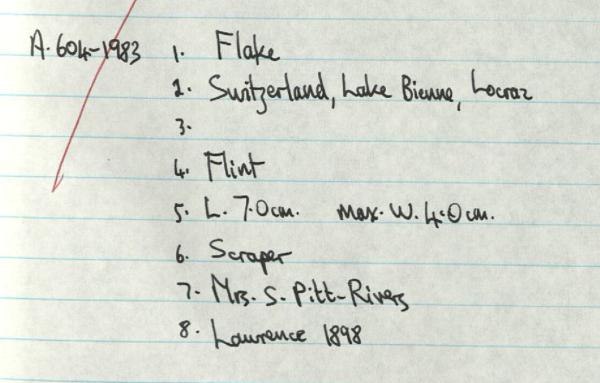 A.604-1983 1. Flake
2. Switzerland, Lake Bienne, Locraz
3.
4. Flint
5. L. 7.0cm. max. W. 4.0cm.
6. Scraper
7. Mrs. S. Pitt-Rivers
8. Lawrence 1898